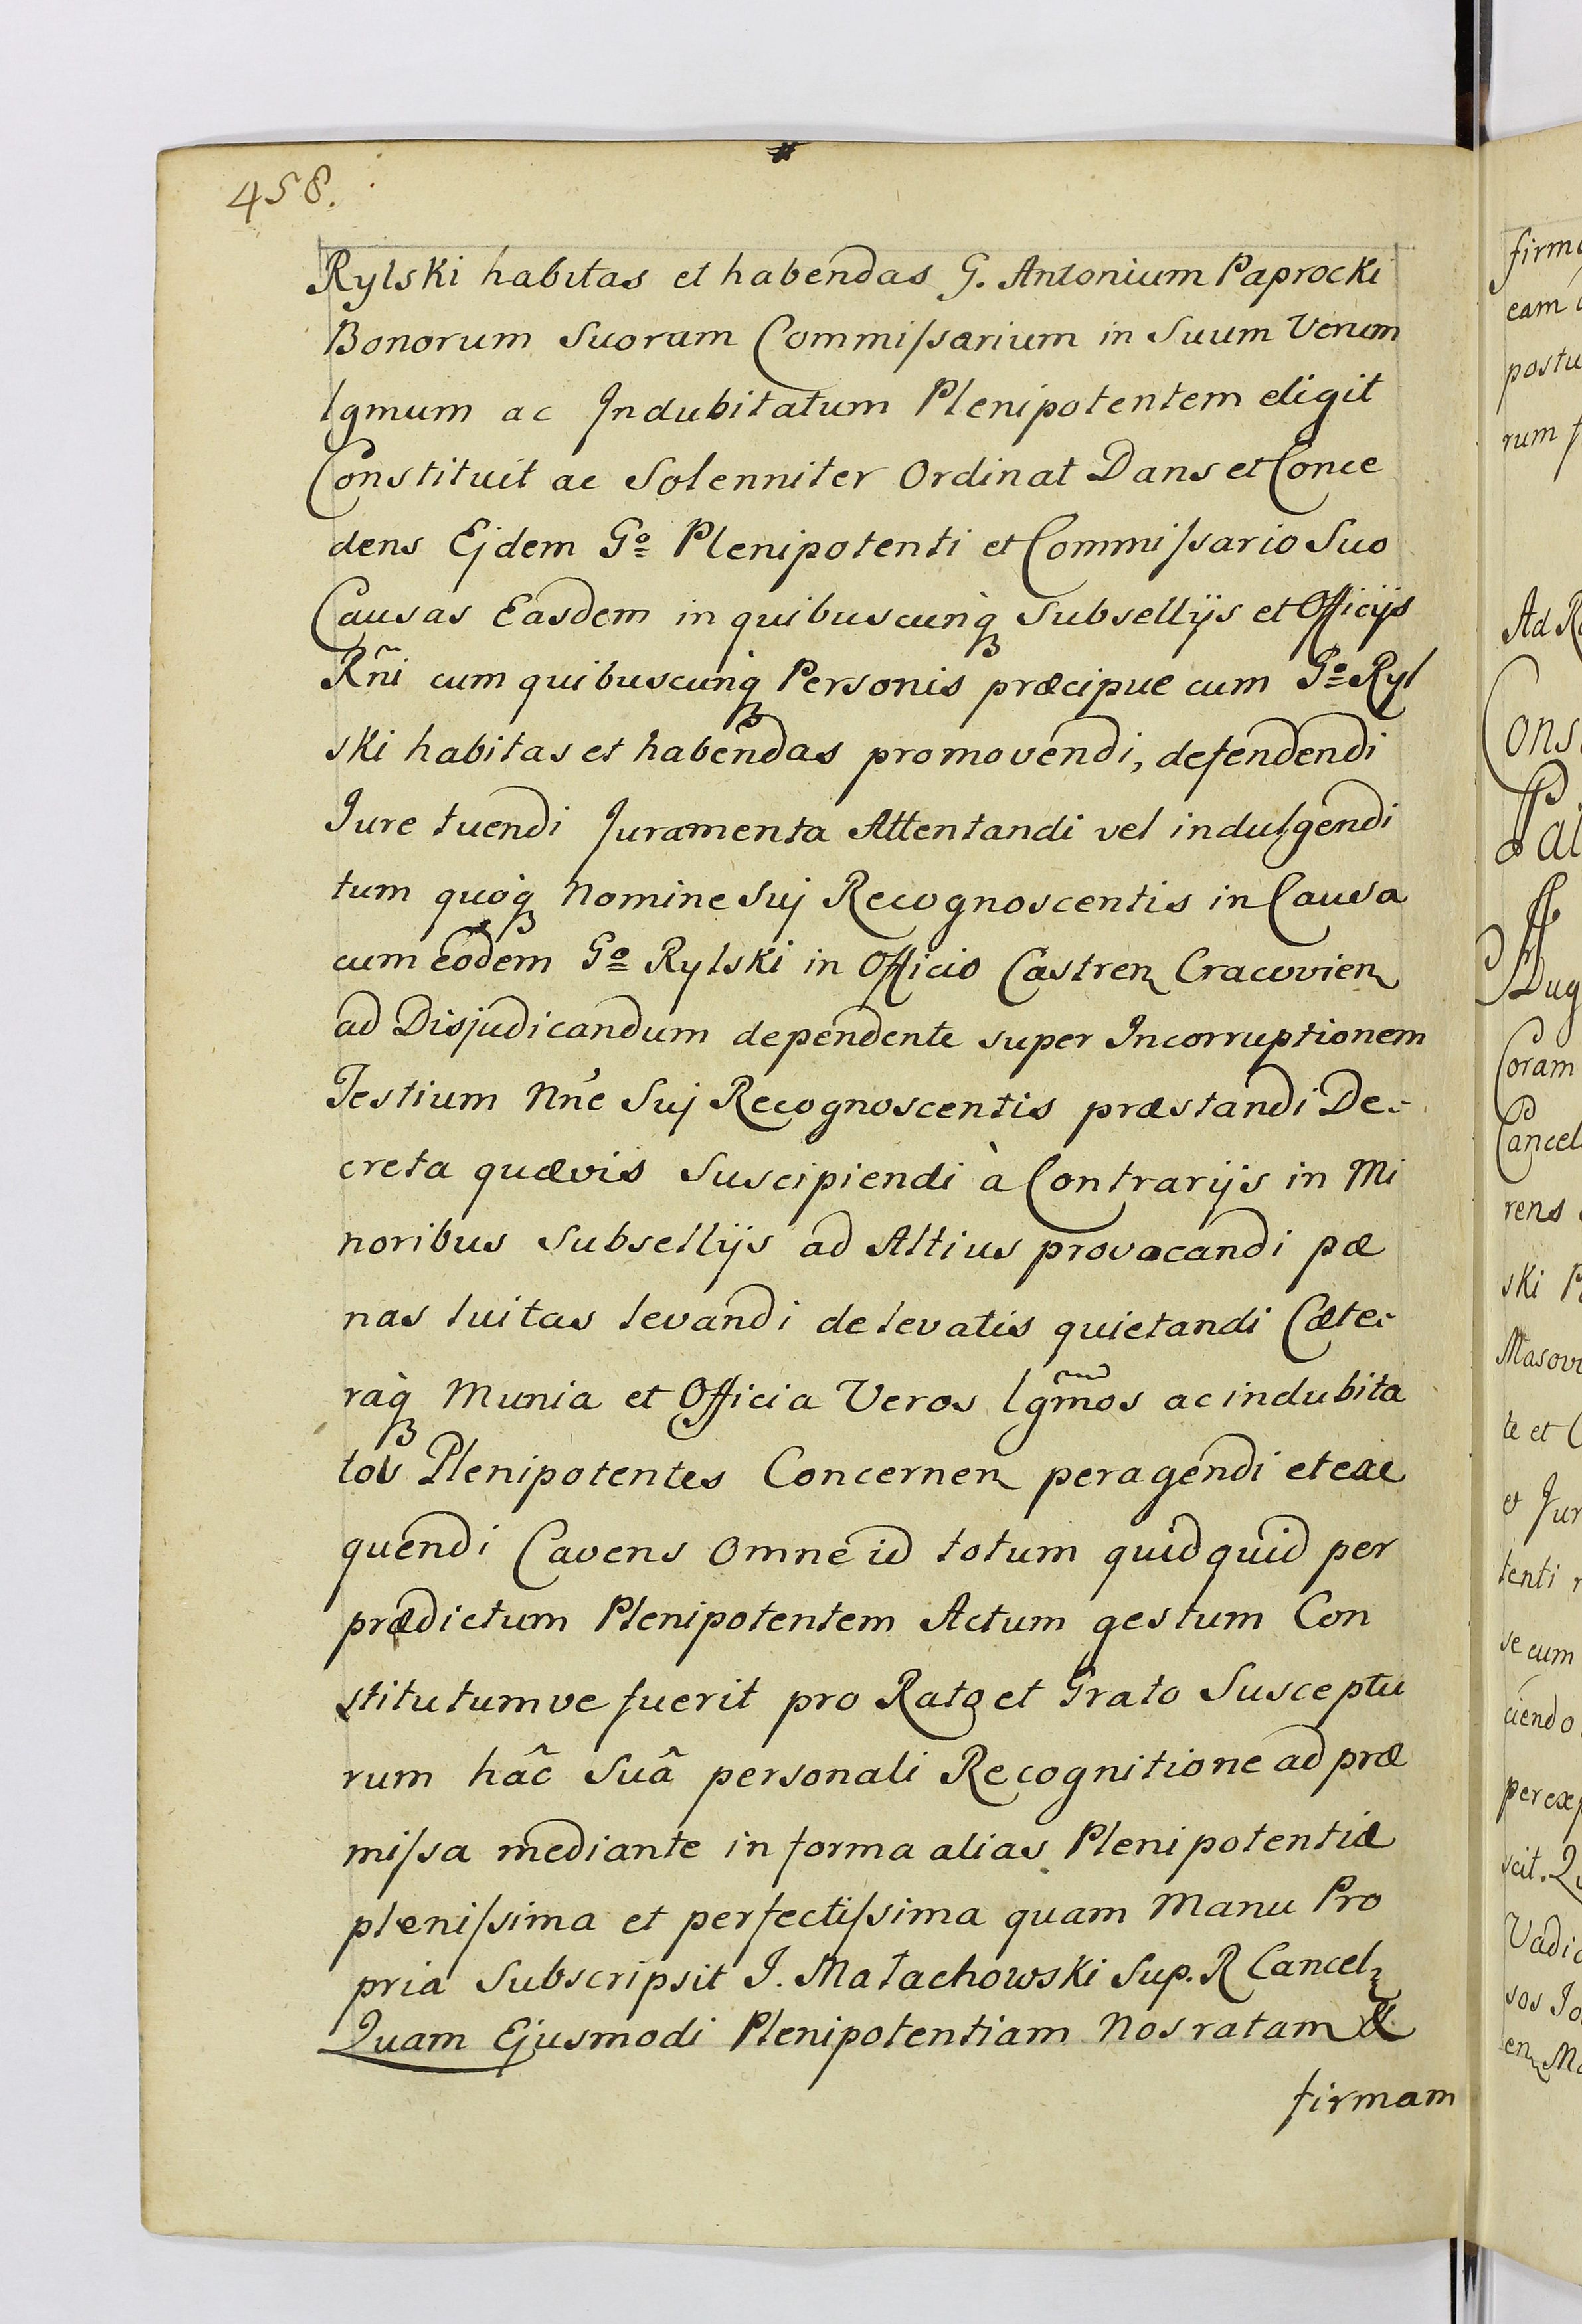 458.
Rylski habitas et habendas G. Antonium Paprocki
Bonorum Suorum Commiſsarium in Suum Verum
lgmum ac Indubitatum Plenipotentem eligit
Constituit ac Solenniter Ordinat Dans et Conce
dens Ejdem Gº Plenipotenti et Commiſsario Suo
Causas Easdem in quibuscunqꝫ Subsellijs et Officijs
Rñi cum quibuscunqꝫ Personis præcipue cum Gº Ryl
ski habitas et habendas promovendi, defendendi
Jure tuendi Juramenta Attentandi vel indulgendi
tum quoqꝫ Nomine Suj Recognoscentis in Causa
cum Eodem Gº Rylski in Officio Castren Cracovien
ad Disjudicandum dependente super Incorruptionem
Testium Nn̄e Suj Recognoscentis præstandi De-
creta quævis Suscipiendi à Contrarijs in Mi
noribus Subsellijs ad Altius provocandi pæ
nas luitas levandi de levatis quietandi Cæte-
raqꝫ Munia et Officia Veros lgm̃os ac indubita
tos Plenipotentes Concernen peragendi et exe
quendi Cavens Omne id totum quidquid per
prædictum Plenipotentem Actum gestum Con
stitutumve fuerit pro Rato et Grato Susceptu
rum hâc Suâ personali Recognitione ad præ
miſsa mediante in forma alias Plenipotentiæ
pleniſsima et perfectiſsima quam Manu Pro
pria Subscripsit J. Małachowski Sup. R Cancel
Quam Ejusmodi Plenipotentiam Nos ratam &
firmam
firm
eam
postu
rum
Ad R
Cons
Pal
Aug
Coram
Cancel
rens
ski P
Masov
te et C
et Jur
tenti
se cum
ciendo
per ex
scit. Q
Vadi
sos Jo
en Ma